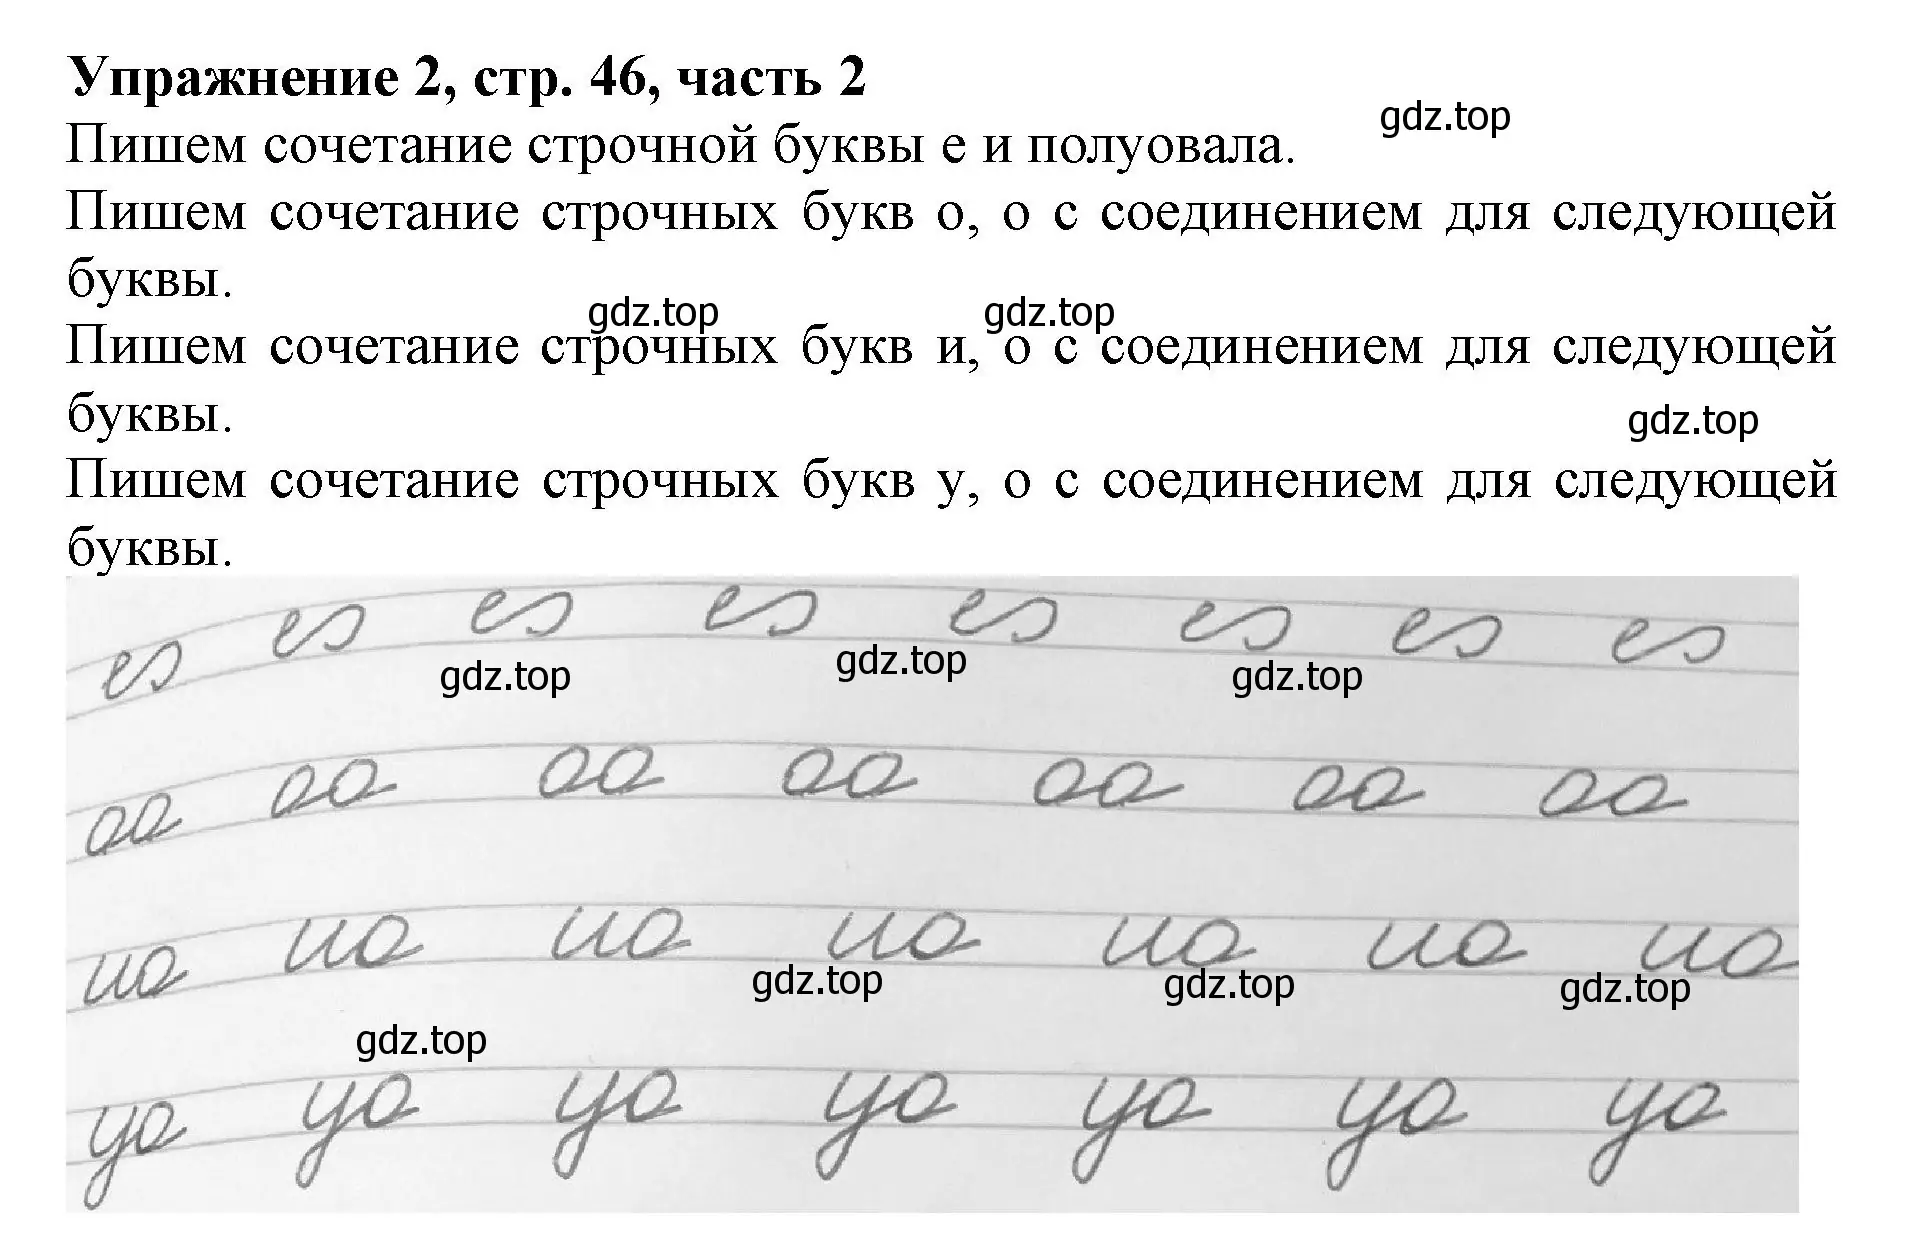 Упражнение 2, стр. 46, часть 2
gdz.top
Пишем сочетание строчной буквы е и полуовала.
Пишем сочетание строчных букв о, о с соединением для следующей
буквы.
gdz.top gdz.top
Пишем сочетание строчных букв и, о с соединением для следующей
буквы.
gdz.top
Пишем сочетание строчных букв у, о с соединением для следующей
буквы.
е е е е е е е е
gdz.top gdz.top gdz.top
оо оо оо оо оо оо оо
ио ио ио ио ио ио ио
gdz.top gdz.top gdz.top
gdz.top
уо уо уо уо уо уо уо